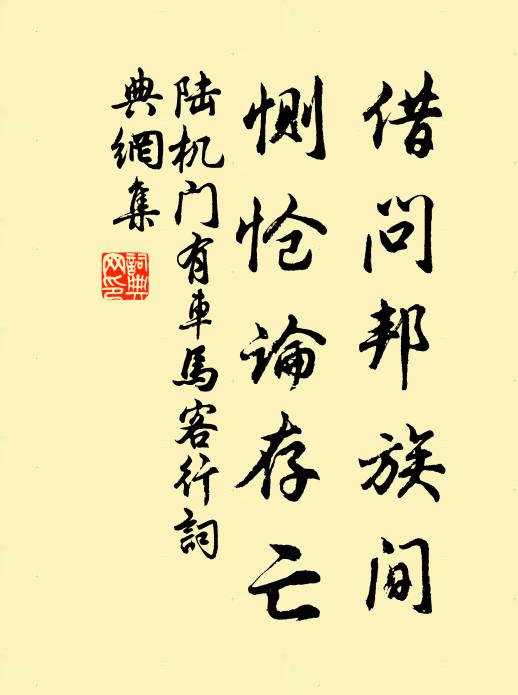 借问邦族间
恻怆论存亡
陆机门有车馬客行詞
典網集
詞典网印